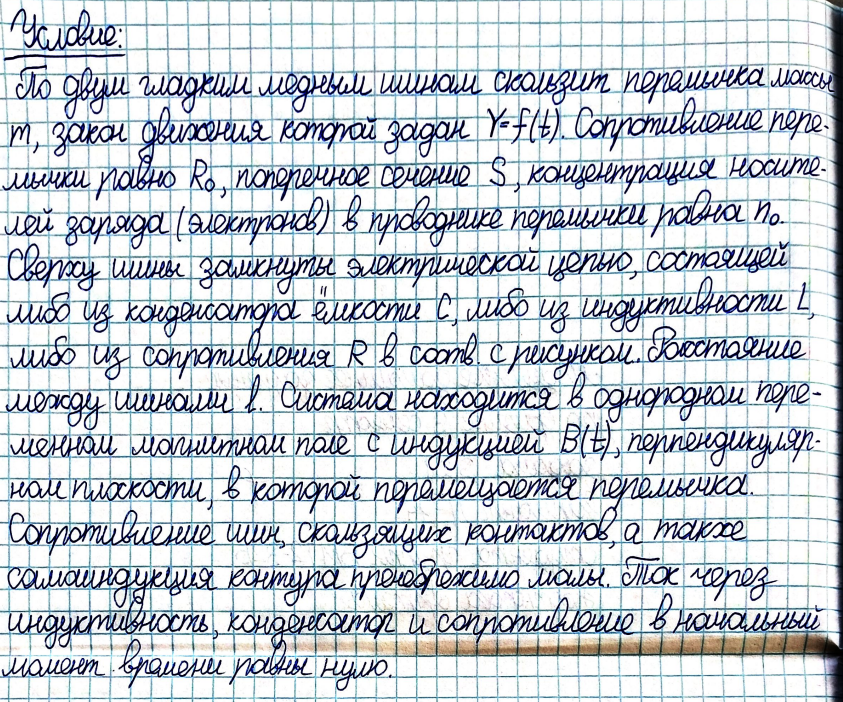 Условие:
По двум гладким медным шинам скользит перемычка массы
m, закон движения которой задан Y=f(t). Сопротивление пере-
мычки равно R₀, поперечное сечение S, концентрация носите-
лей заряда (электронов) в проводнике перемычки равна n₀.
Сверху шины замкнуты электрической цепью, состоящей
либо из конденсатора ёмкости C, либо из индуктивности L,
либо из сопротивления R в соотв. с рисунком. Расстояние
между шинами l. Система находится в однородном пере-
менном магнитном поле с индукцией B(t), перпендикуляр-
ном плоскости, в которой перемещается перемычка.
Сопротивление шин, скользящих контактов, а также
самоиндукция контура пренебрежимо малы. Ток через
индуктивность, конденсатор и сопротивление в начальный
момент времени равны нулю.